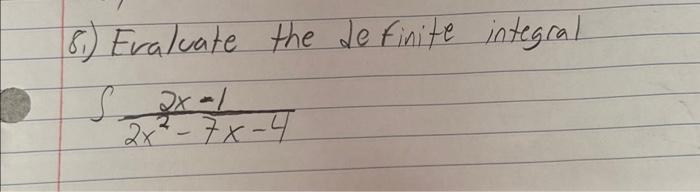 8.) Evaluate the definite integral
∫ 2x-1
2x² - 7x - 4